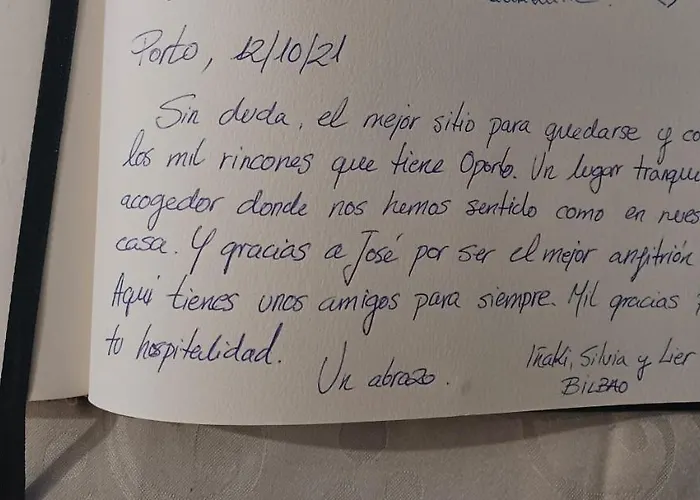 Porto, 12/10/21
Sin duda, el mejor sitio para quedarse y co
los mil rincones que tiene Oporto. Un lugar tranqui
acogedor donde nos hemos sentido como en nues
casa. Y gracias a José por ser el mejor anfitrión
Aquí tienes unos amigos para siempre. Mil gracias
tu hospitalidad.
Un abrazo.
Iñaki, Silvia y Lier
BILBAO